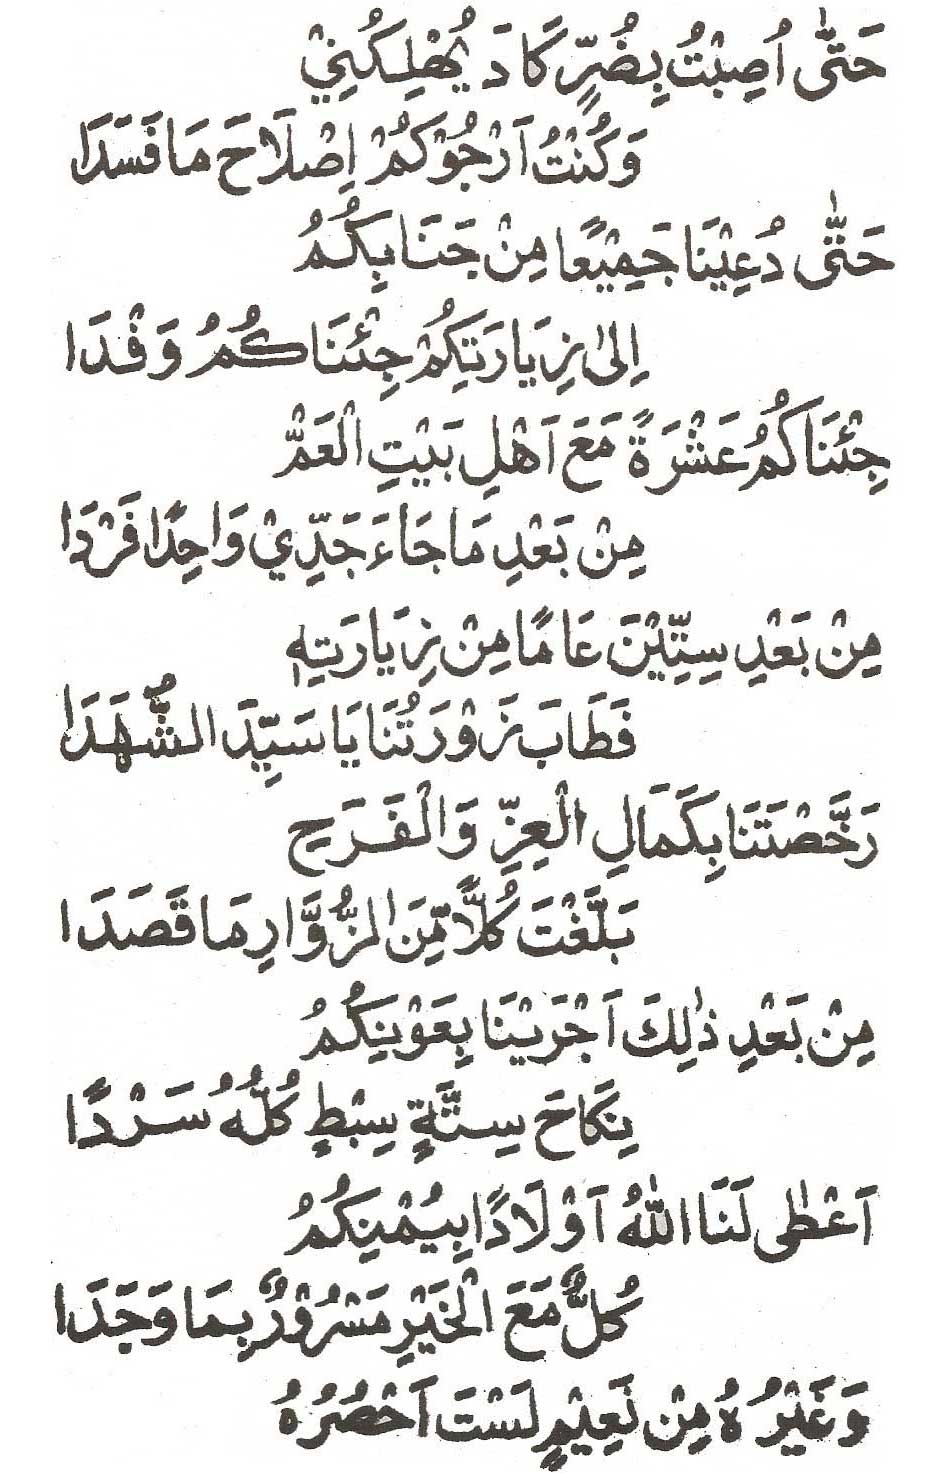 حَتّٰى اُصِبْتُ بِضُرٍّ كَادَ يُهْلِكُنِيْ
وَكُنْتُ اَرْجُوْكُمْ اِصْلَاحَ مَا فَسَدَا
حَتّٰى دُعِيْنَا جَمِيْعًا مِنْ جَنَابِكُمُ
اِلىٰ زِيَارَتِكُمْ جِئْنَاكُمُ وَفْدَا
جِئْنَاكُمُ عَشْرَةً مَعَ اَهْلِ بَيْتِ الْعَمّْ
مِنْ بَعْدِ مَا جَاءَ جَدِّيْ وَاحِدًا فَرْدَا
مِنْ بَعْدِ سِتِّيْنَ عَامًا مِنْ زِيَارَتِهٖ
فَطَابَ زَوْرَتُنَا يَا سَيِّدَ الشُّهَدَا
رَخَّصْتَنَا بِكَمَالِ الْعِزِّ وَالْفَرَحِ
بَلَّغْتَ كُلًّا مِّنَ الزُّوَّارِ مَا قَصَدَا
مِنْ بَعْدِ ذٰلِكَ اَجْرَيْنَا بِعَوْنِكُمُ
نِكَاحَ سِتَّةٍ سِبْطٍ كُلُّهُ سَرْدًا
اَعْطٰى لَنَا اللّٰهُ اَوْلَادًا بِيُمْنِكُمُ
كُلٌّ مَعَ الْخَيْرِ مَسْرُوْرٌ بِمَا وَجَدَا
وَغَيْرُهُ مِنْ نَعِيْمٍ لَسْتَ اَحْصُرُهُ